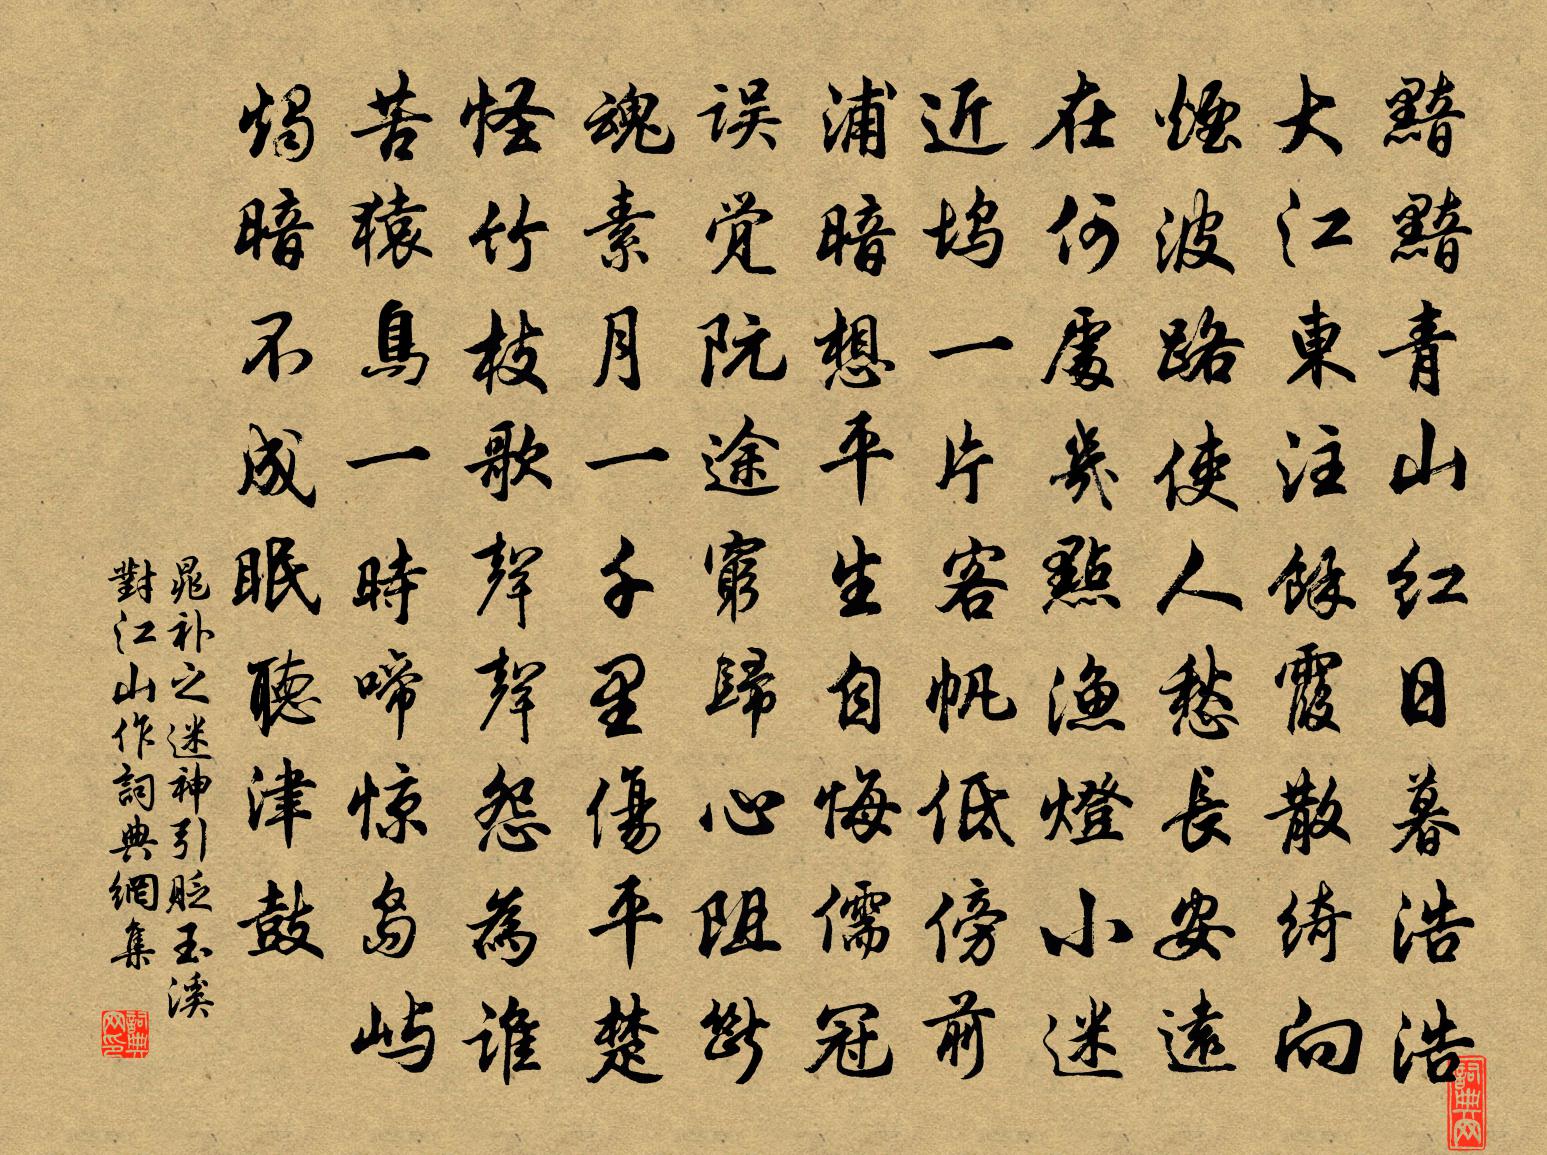 黯黯青山红日暮浩浩
大江東注餘霞散綺向
煙波路使人愁長安遠
在何處幾點漁燈小迷
近坞一片客帆低傍前
浦暗想平生自悔儒冠
误觉阮途窮歸心阻斷
魂素月一千里傷平楚
怪竹枝歌聲聲怨為谁
苦猿鳥一時啼惊岛屿
燭暗不成眠聽津鼓
晁补之迷神引贬玉溪
對江山作詞典網集
詞典网印
詞典网